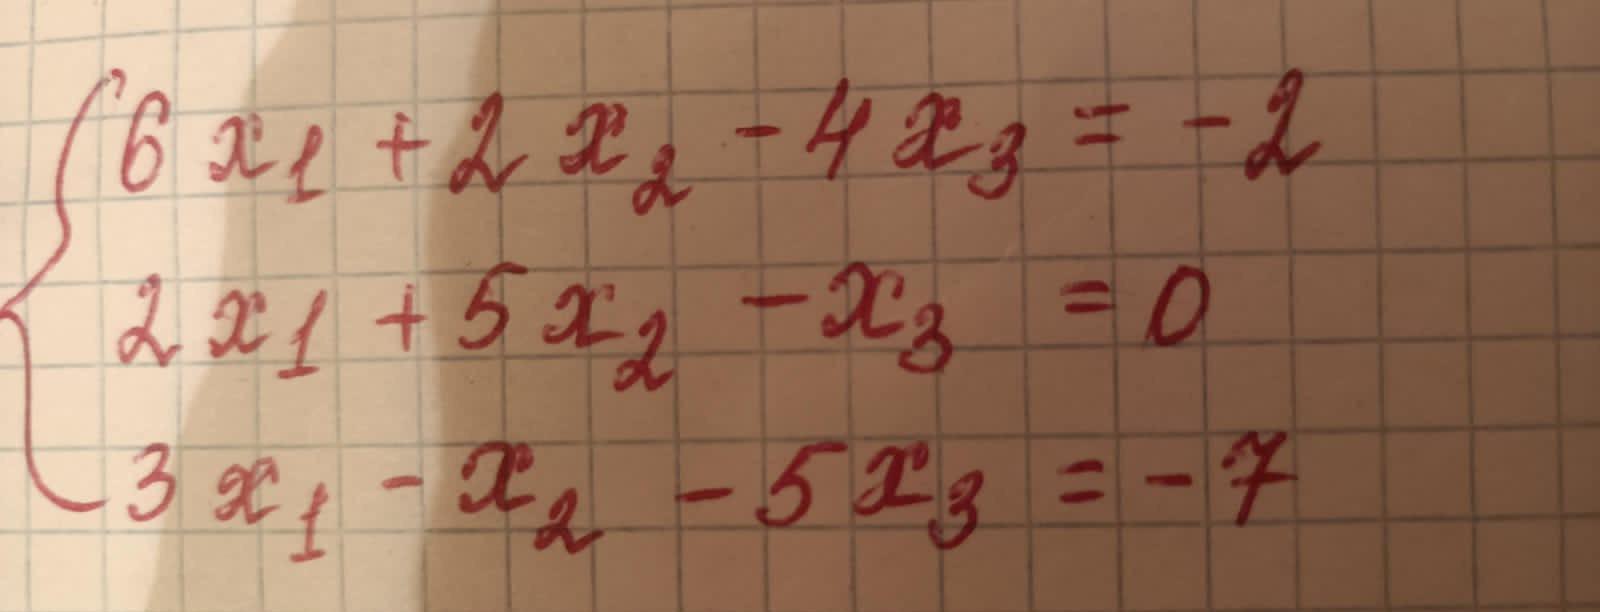 6x₁ + 2x₂ - 4x₃ = -2
2x₁ + 5x₂ - x₃ = 0
3x₁ - x₂ - 5x₃ = -7